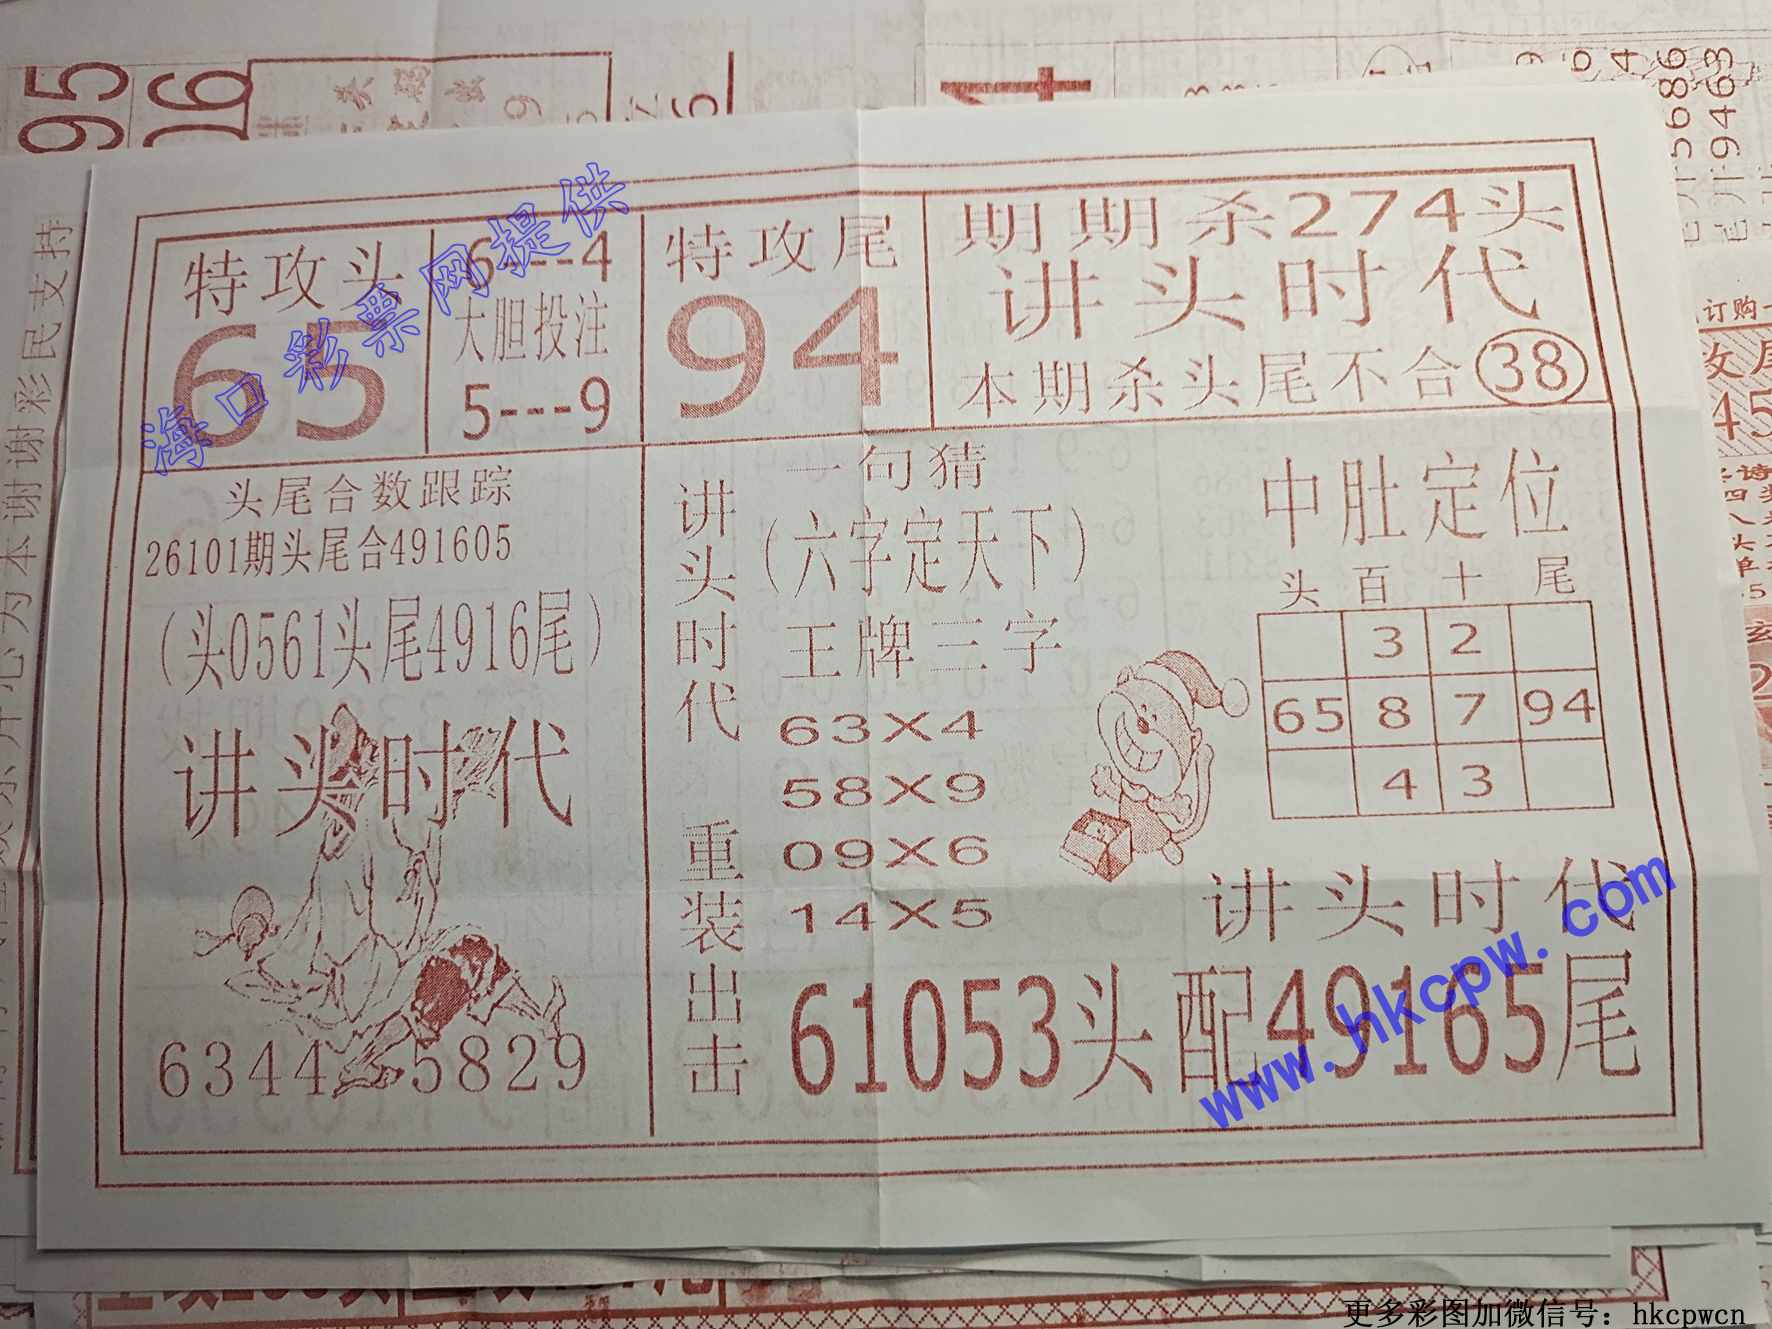 特攻头
65
6---4
大胆投注
5---9
特攻尾
94
期期杀274头
讲头时代
本期杀头尾不合38
头尾合数跟踪
26101期头尾合491605
(头0561头尾4916尾)
讲头时代
6344 5829
讲头时代 重装出击
一句猜
(六字定天下)
王牌三字
63X4
58X9
09X6
14X5
中肚定位
头 百 十 尾
3 2
65 8 7 94
4 3
讲头时代
61053头配49165尾
海口彩票网提供
www.hkcpw.com
更多彩图加微信号：hkcpwcn
95
06
5686
9463
订购
45
为本谢谢彩民支持